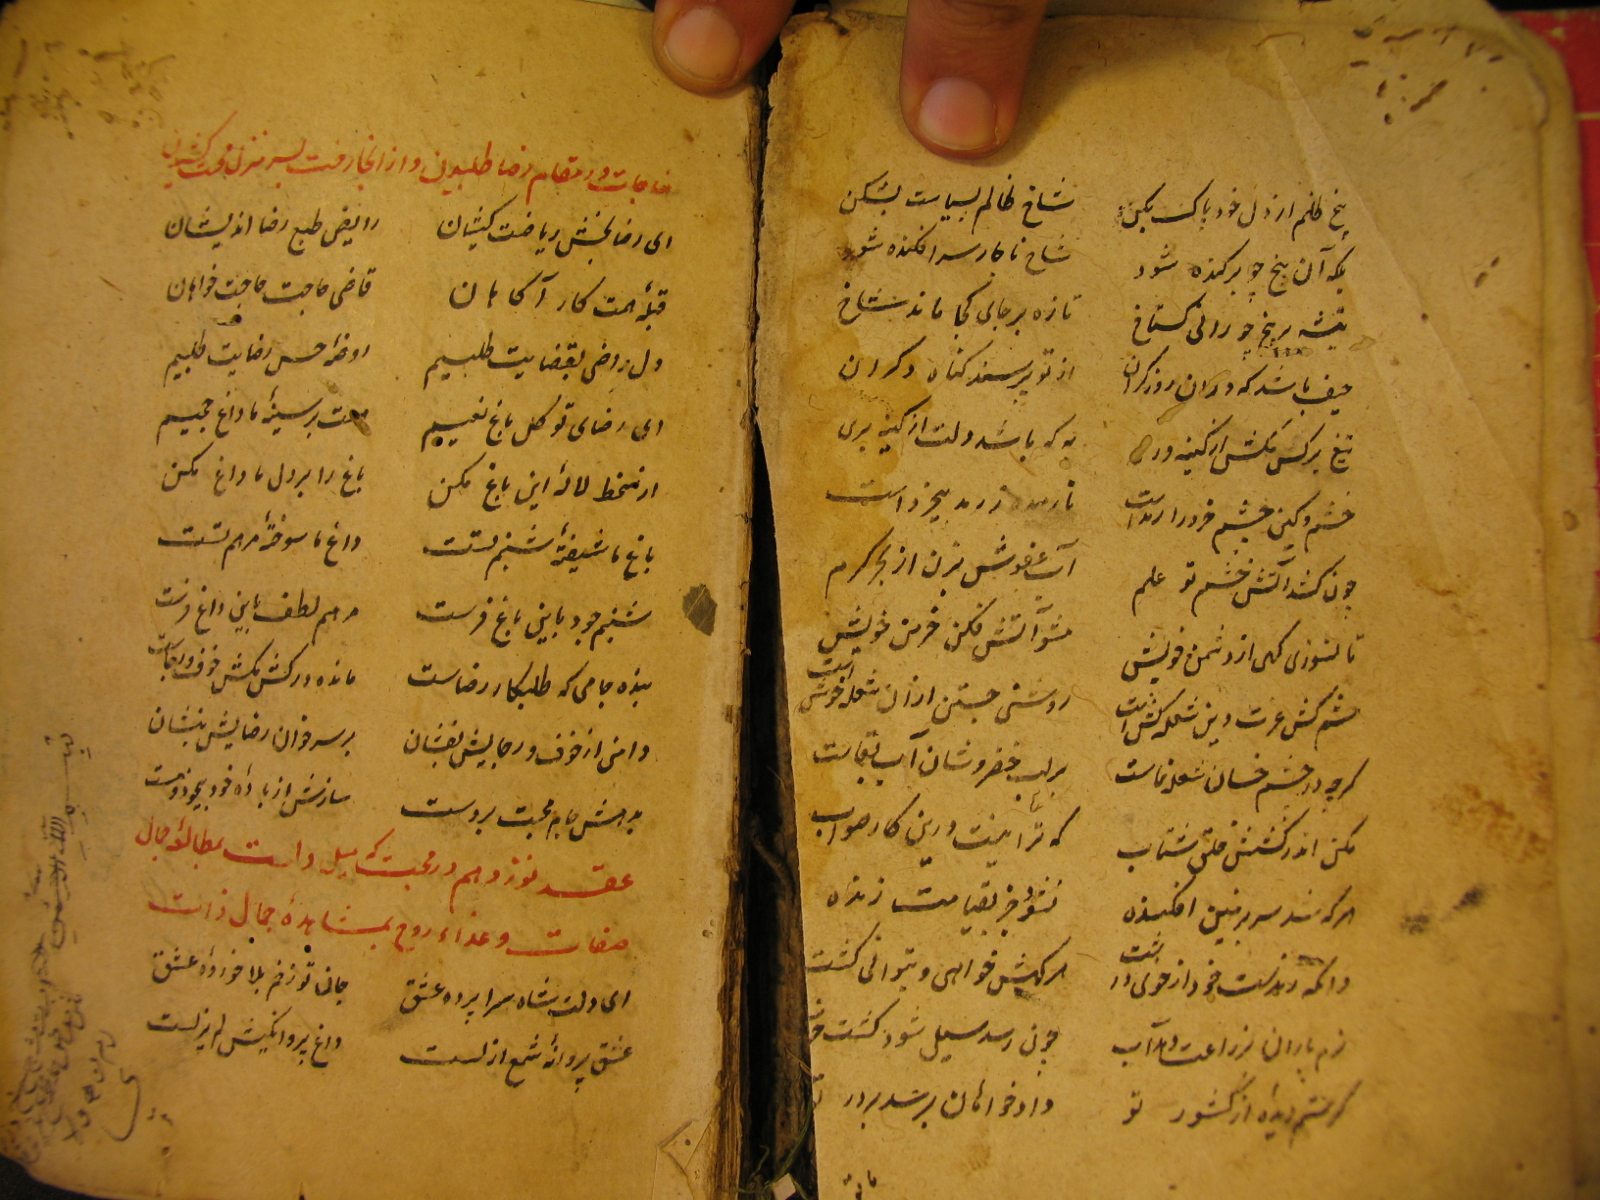 بیخ ظلم از دل خود پاک بکن شاخ ظالم بسیاست بشکن
بلکه آن بیخ چو برکنده شود شاخ ناچار سرافکنده شود
تیشه بر بیخ چو رانی گستاخ تازه بر جای کجا ماند شاخ
حیف باشد که دران روز گران از تو پرسند گناه دگران
تیغ بر کس مکش از کینه وری به که باشد دلت از کینه بری
خشم و کین چشم خرد را رمد است
چون کشد آتش خشم تو علم آب عفوش بزن از بحر کرم
تا نسوزی کهی از دشمن خویش مشو آتش فکن خرمن خویش
خشم کش عزت دین شعله کش است روشنی جستن ازان شعله خوش است
گر چه در چشم خسان شعله نماست بر لب خضروشان آب بقاست
مکن اندر کشش خلق شتاب که ترا نیست درین کار صواب
هر که شد سر بزمین افکنده نشود جز بقیامت زنده
وانکه زنده ست خود از خوی درشت هر گهش خواهی و بتوانی کشت
نرم باران بزراعت دهد آب چون رسد سیل شود کشت
گر ستم دیده از کشور تو دادخواهان برسد بر در
مناجات در مقام رضا طلبیدن و از انجا رخت بسر منزل محبت کشیدن
ای رضا بخش ریاضت کیشان رایض طبع رضا اندیشان
قبله همت کار آگاهان قاضی حاجت حاجت خواهان
دل راضی بقضایت طلبیم روضه حسن رضایت طلبیم
ای رضای تو گل باغ نعیم بر سینه ما داغ جحیم
از سخط لاله این باغ مکن باغ را بر دل ما داغ مکن
باغ ما شیفته شبنم تست داغ ما سوخته مرهم تست
شبنم جود باین باغ فرست مرهم لطف باین داغ فرست
بنده جامی که طلبکار رضاست مانده در کش مکش خوف و رجاست
دامن از خوف و رجایش بفشان بر سر خوان رضایش بنشان
بدهش جام محبت بر دست سازش از باده خود بیخود و مست
عقد نوزدهم در محبت که میل دلست بمطالعه جمال
صفات و غذاء روح بمشاهده جمال ذات
ای دلت شاه سراپرده عشق جان تو زخم بلا خورده عشق
عشق پروانه شمع ازلست داغ پروانگیش لم یزلست